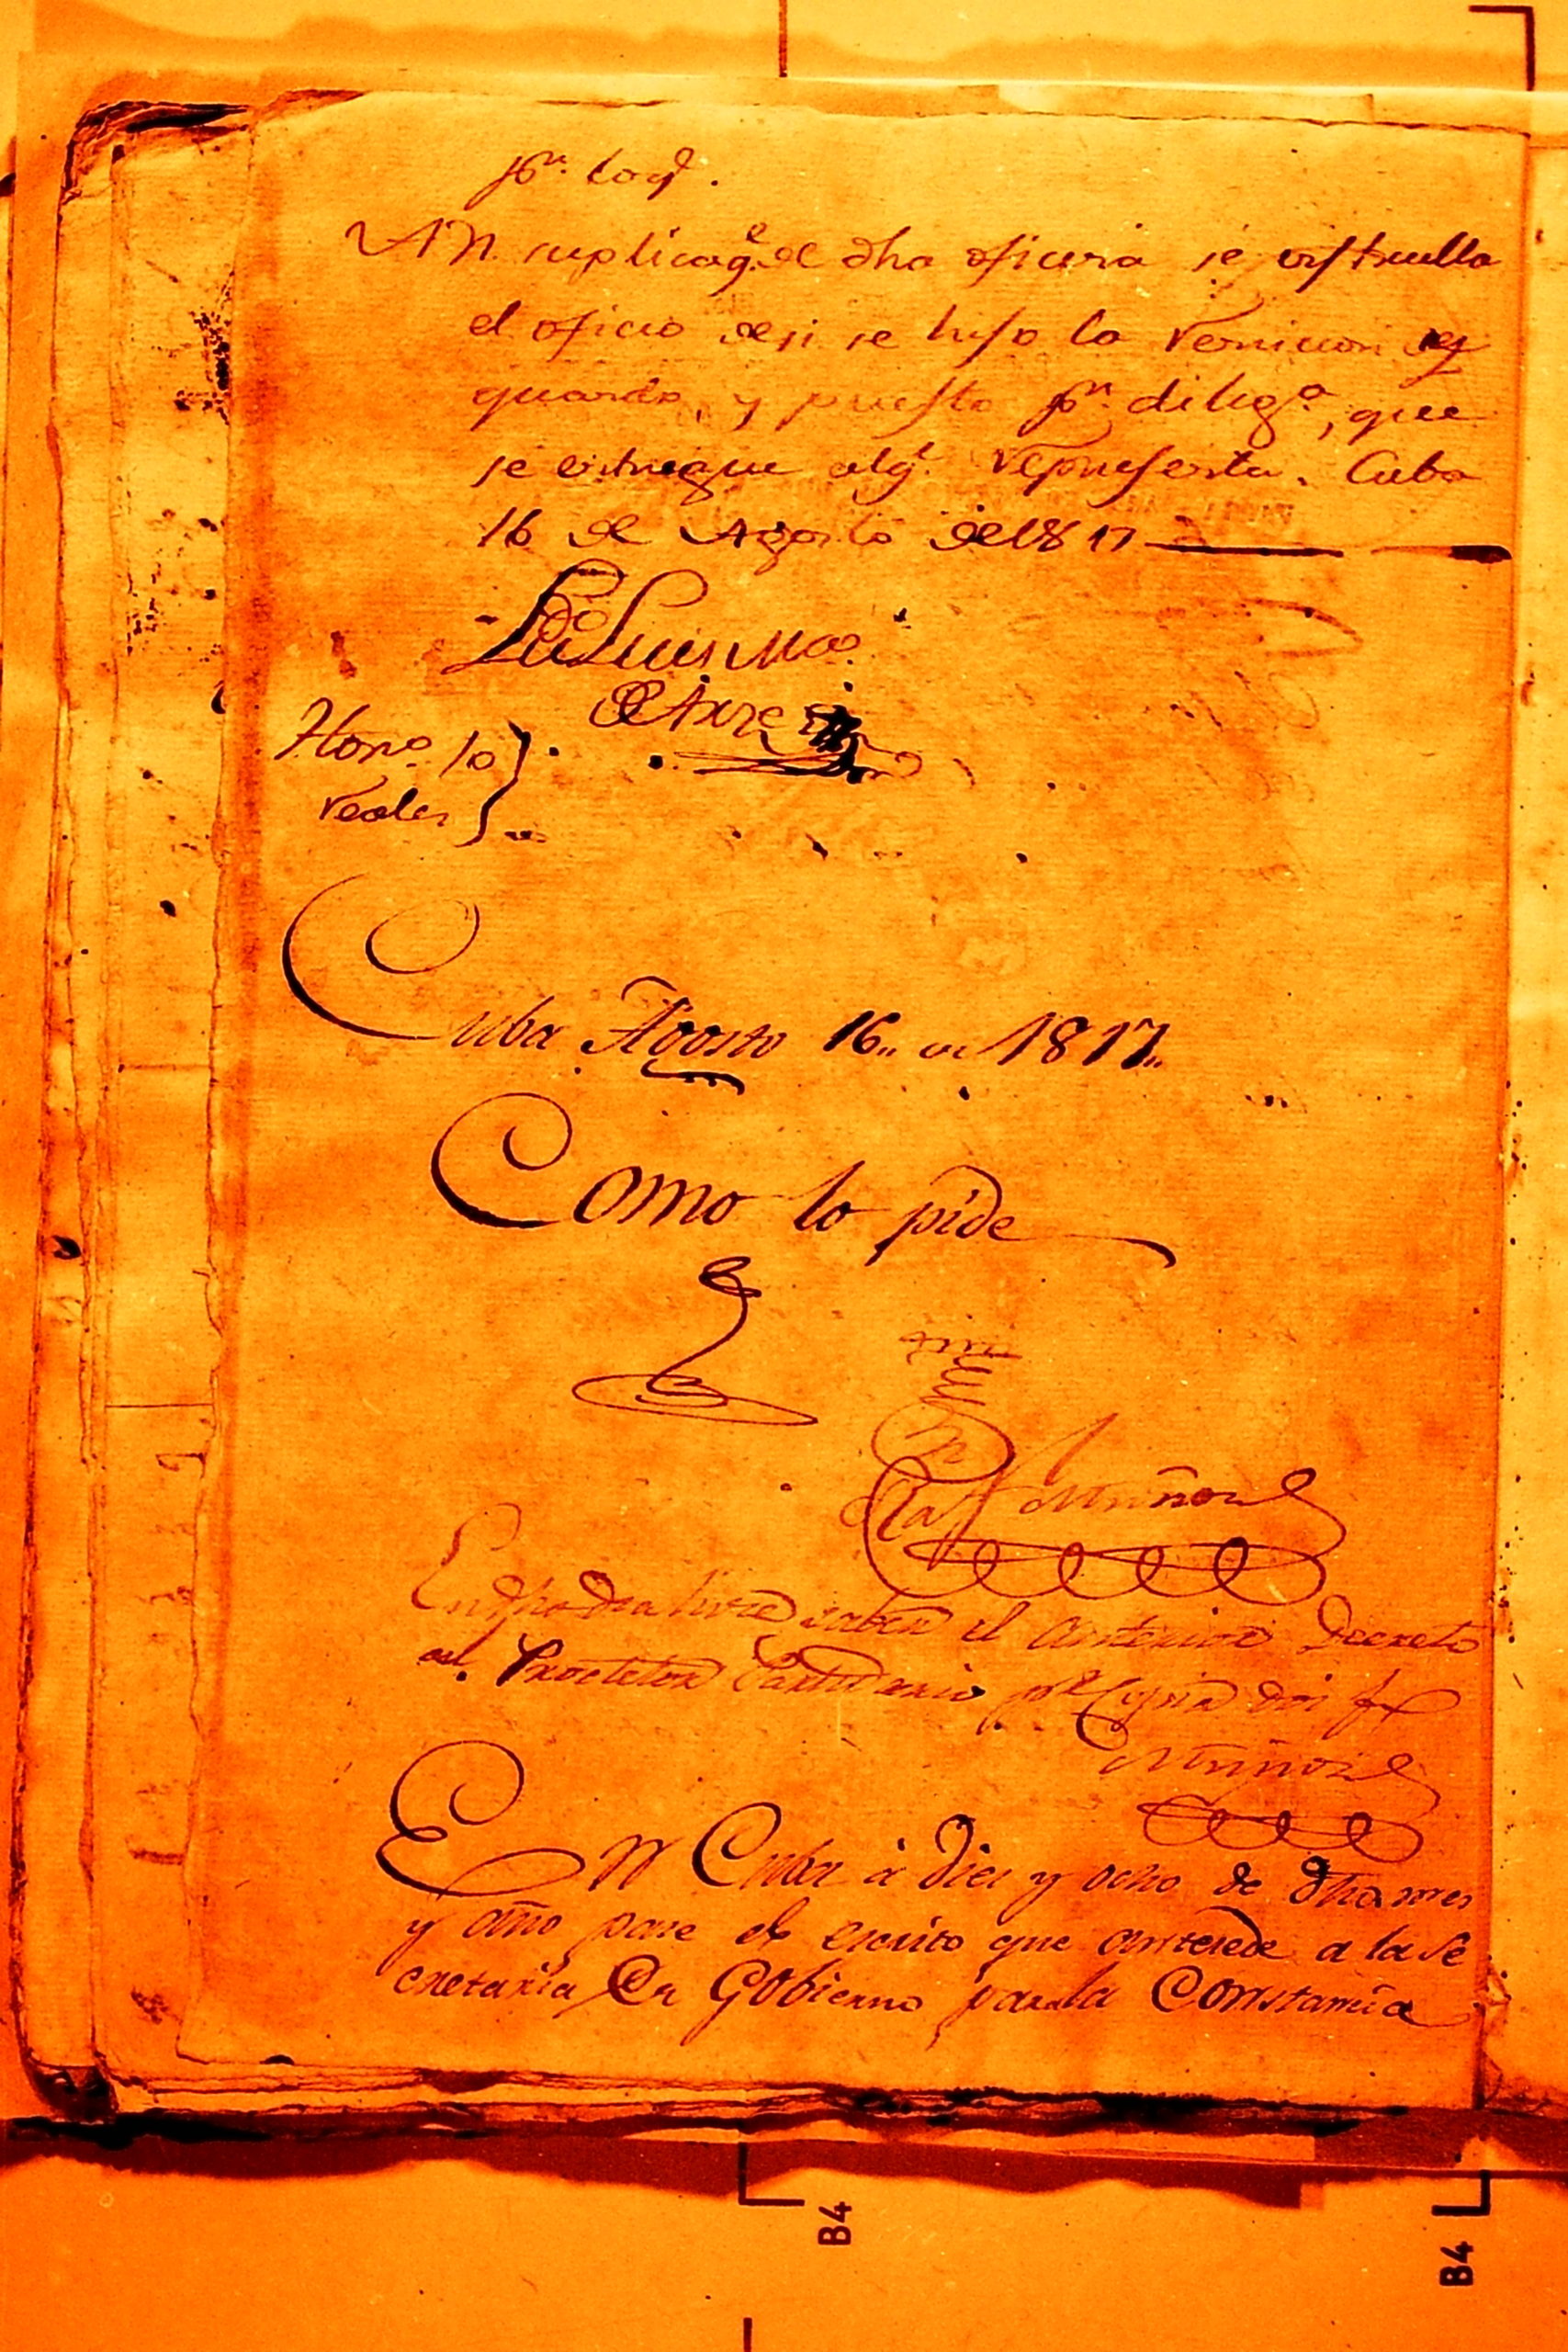 pr. loq.
A V. suplica q.e de dha oficina se instrulla
el oficio de si se hiso la
guarda, y puesto pr. dilig.a, que
se entregue al q.e representa. Cuba
16 de Agosto de 1817
Ldo. Luis Ma.
Hon.o 10
reales
Cuba Agosto 16,, de 1817,,
Como lo pide
Ante
Raf Muñoz
En dho dia hize saber el anterior Decreto
al Protetor Partidario pr. Copia doi fe
Muñoz
En Cuba à Diez y ocho de dho mes
y año pase el escrito que antesede a la Se
cretaria de Gobierno para la Constancia
B4
B4